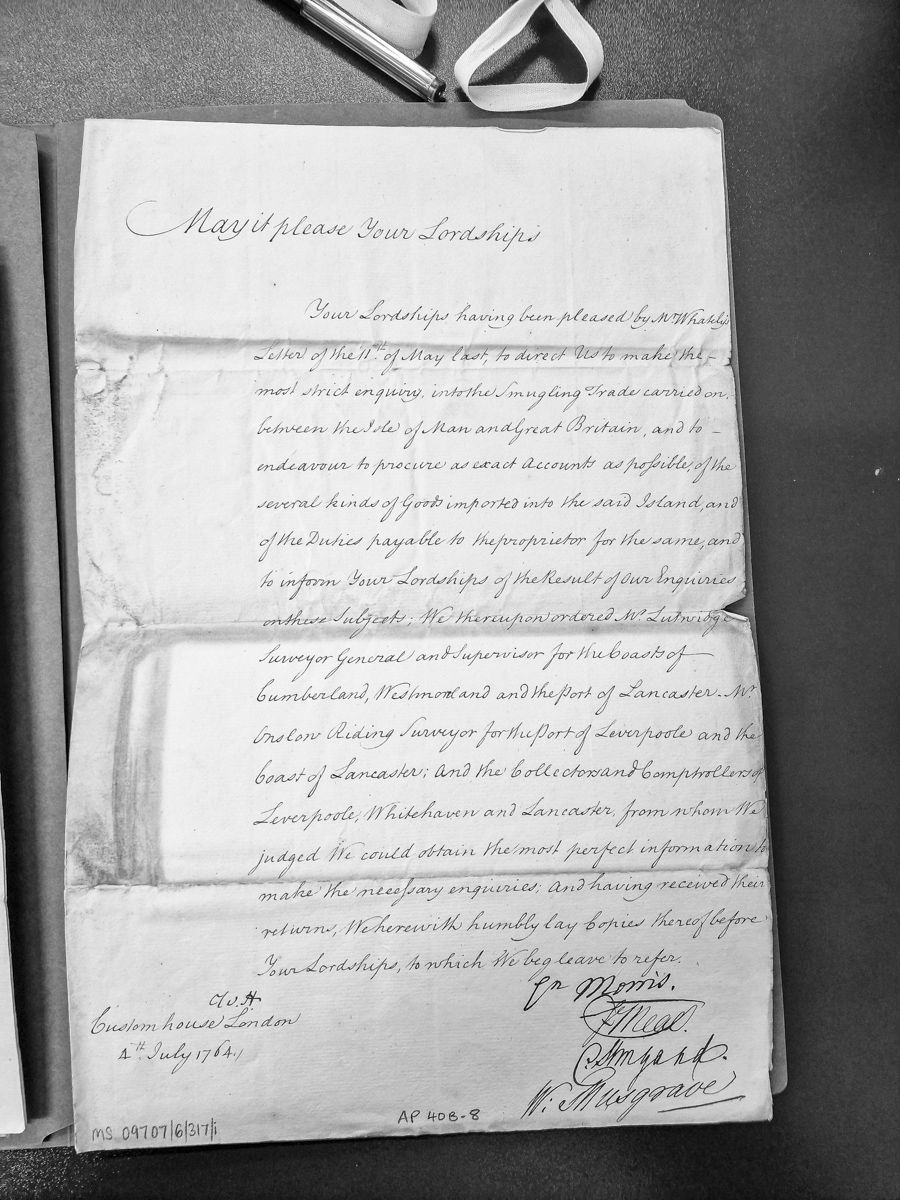 May it please Your Lordships
Your Lordships having been pleased by Mr. Whately's
Letter of the 11th. of May last, to direct Us to make the –
most strict enquiry, into the Smugling Trade carried on,
between the Isle of Man and Great Britain, and to –
endeavour to procure as exact Accounts as possible, of the
several kinds of Goods imported into the said Island, and
of the Duties payable to the proprietor for the same, and
to inform Your Lordships of the Result of Our Enquiries
on these Subjects; We thereupon ordered Mr. Lutwidge
Surveyor General and Supervisor for the Coasts of
Cumberland, Westmorland and the Port of Lancaster. Mr.
Onslow Riding Surveyor for the Port of Leverpoole and the
Coast of Lancaster; And the Collectors and Comptrollers of
Leverpoole, Whitehaven and Lancaster, from whom We
judged We could obtain the most perfect information to
make the necessary enquiries; And having received their
returns, We herewith humbly lay Copies thereof before
Your Lordships, to which We beg leave to refer.
Custom house London
4th. July 1764.
Morris.
W: Musgrave
MS 09707/6/317/i
AP 40B-8